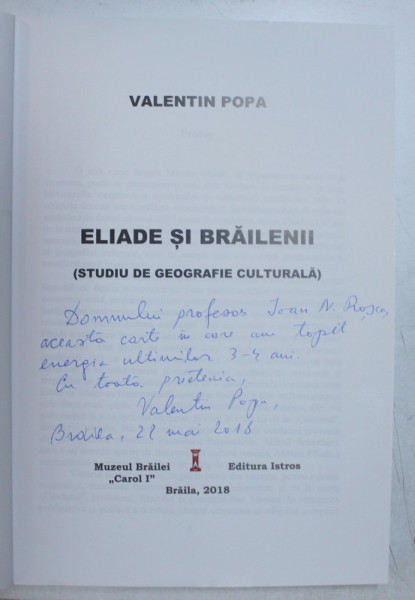 VALENTIN POPA
ELIADE ȘI BRĂILENII
(STUDIU DE GEOGRAFIE CULTURALĂ)
Domnului profesor Ioan N. Roșca,
această carte în care am topit
energia ultimilor 3-4 ani.
Cu toată prietenia,
Valentin Popa,
Brăila, 22 mai 2018
Muzeul Brăilei Editura Istros
„Carol I”
Brăila, 2018